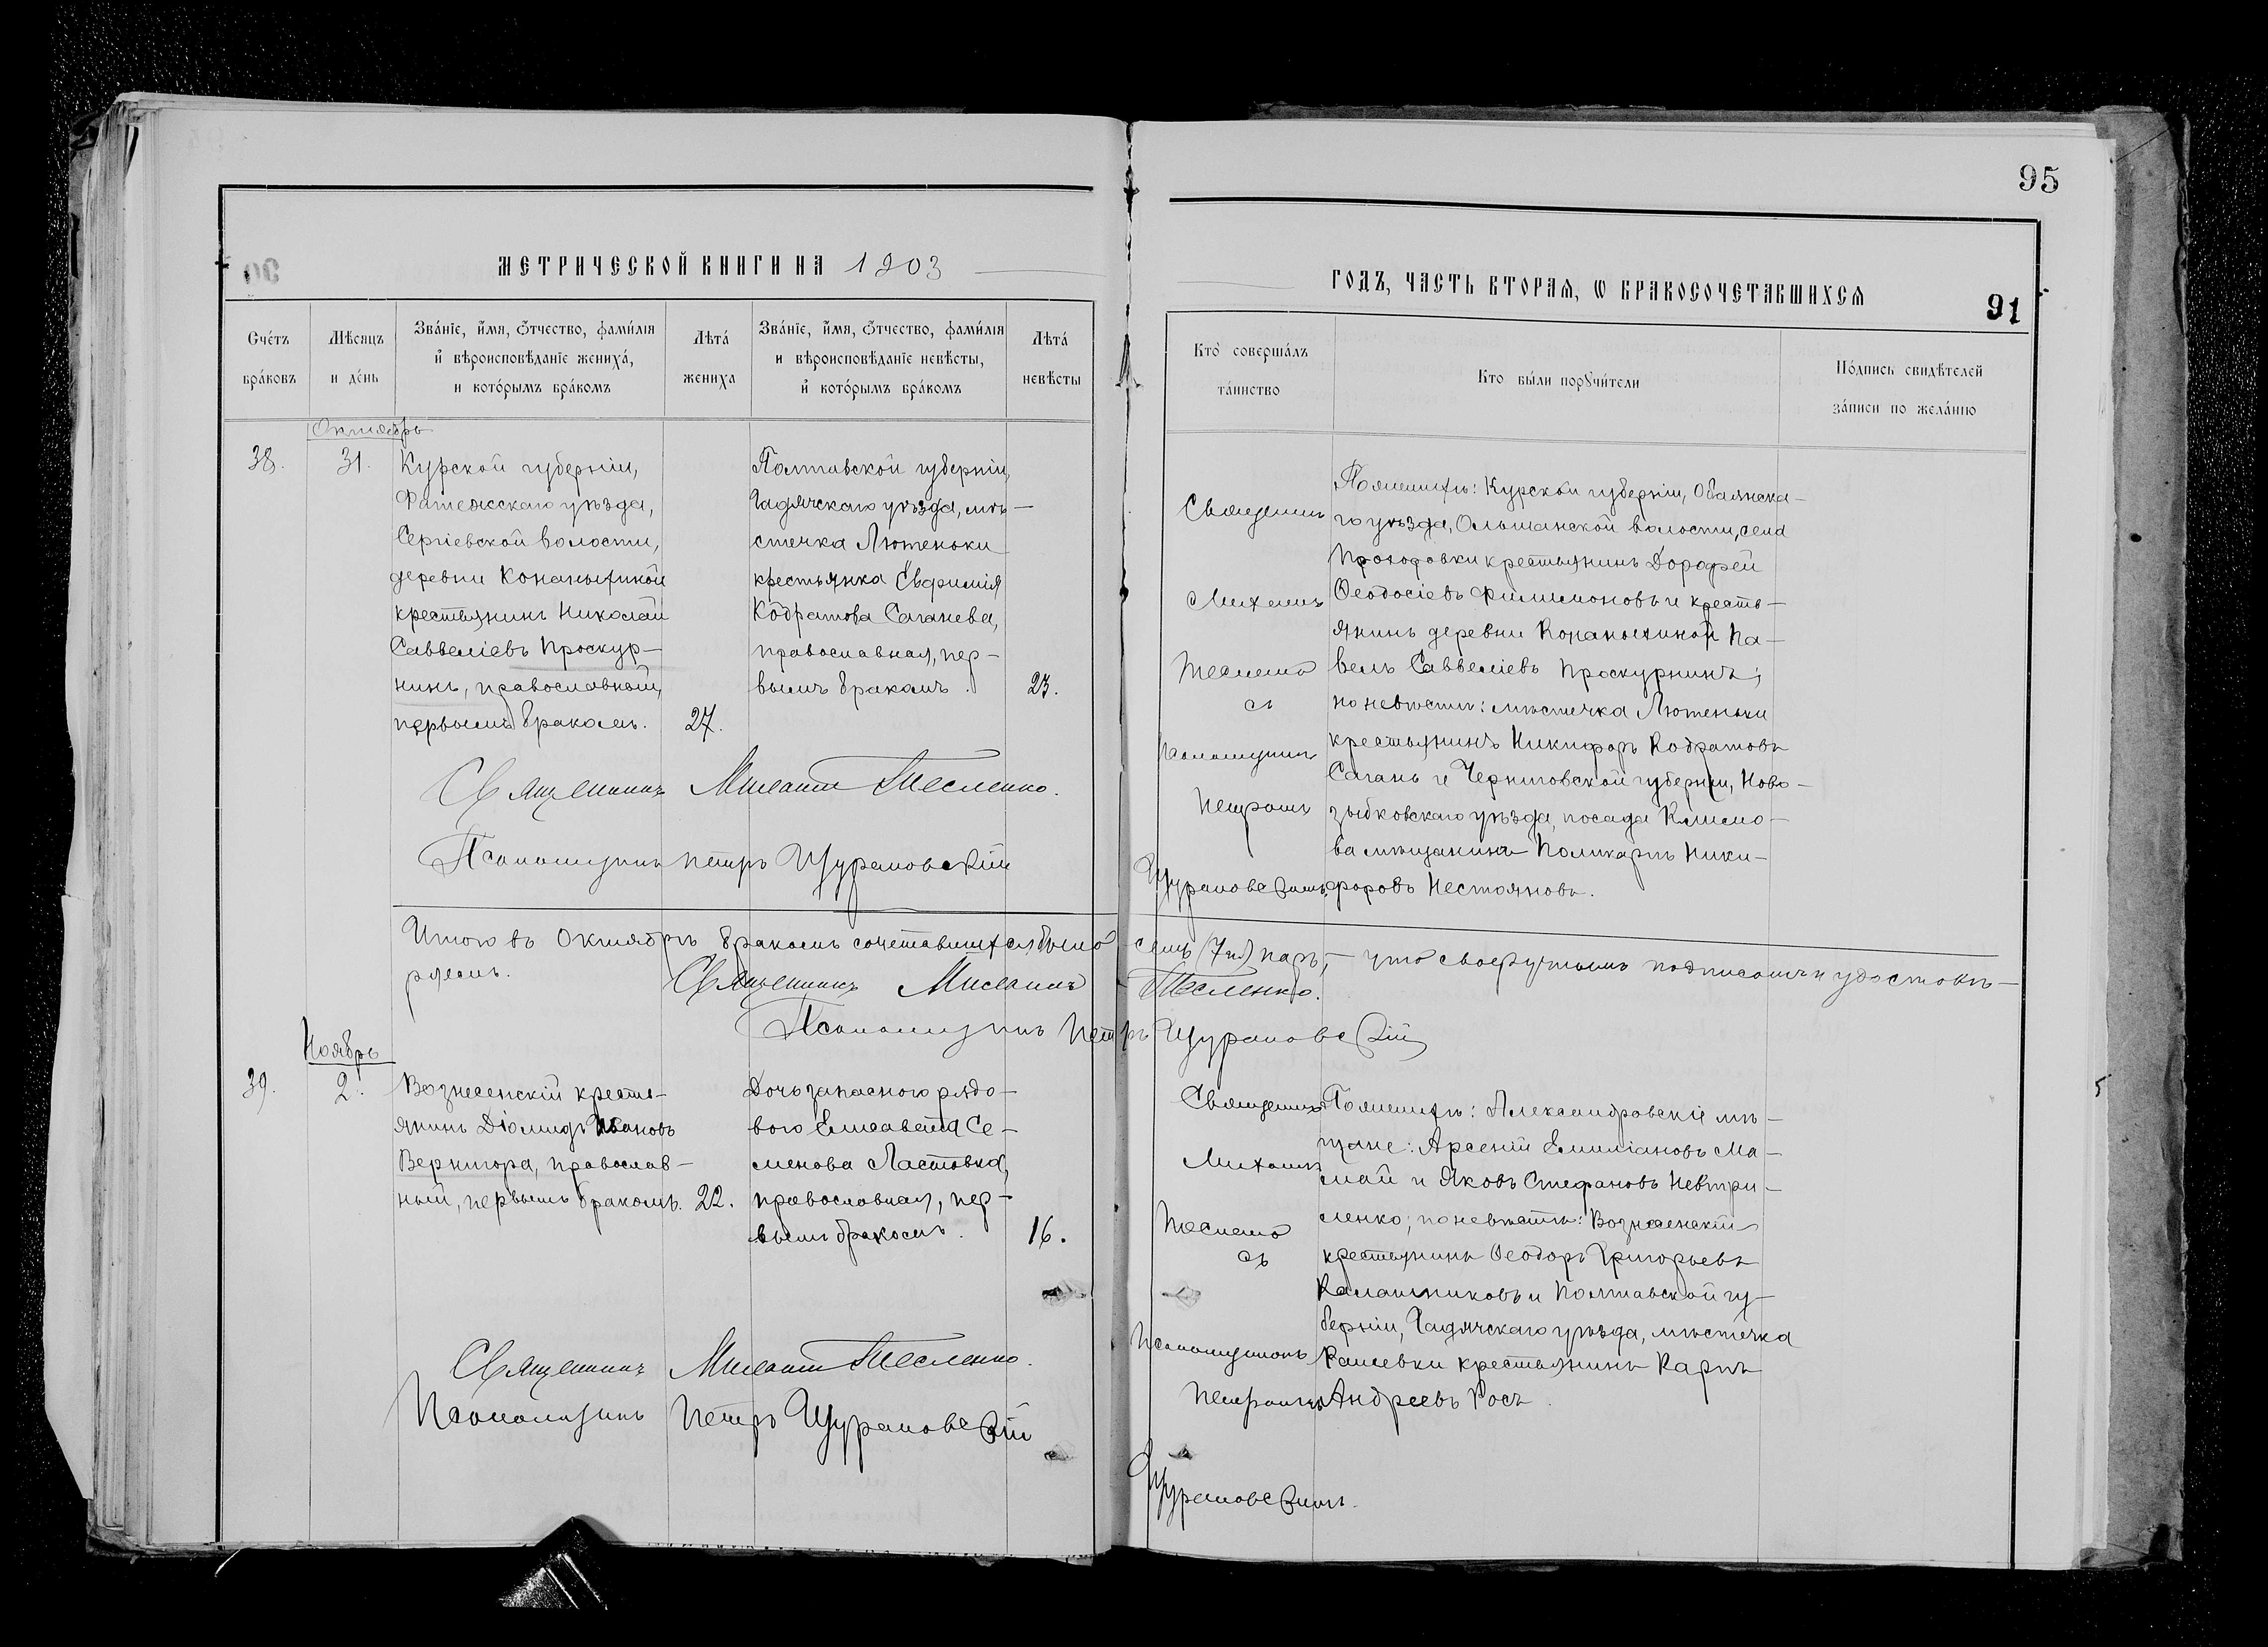 95
МЕТРИЧЕСКОЙ КНИГИ НА 1903
ГОДЪ, ЧАСТЬ ВТОРАЯ, Ѡ БРАКОСОЧЕТАВШИХСЯ
91
Счетъ браковъ
Мѣсяцъ и день
Званіе, имя, отчество, фамилія
и вѣроисповѣданіе жениха,
и которымъ бракомъ
Лѣта жениха
Званіе, имя, отчество, фамилія
и вѣроисповѣданіе невѣсты,
и которымъ бракомъ
Лѣта невѣсты
Кто совершалъ таинство
Кто были поручители
Подпись свидѣтелей
записи по желанію
Октябрь
38.
31.
Курской губерніи,
Фатежскаго уѣзда,
Сергіевской волости,
деревни Конаныхиной
крестьянинъ Николай
Саввеліевъ Проскур-
нинъ, православный,
первымъ бракомъ.
27.
Полтавской губерніи,
Гадячскаго уѣзда, мѣ-
стечка Лютеньки
крестьянка Евфимія
Кодратова Саганева,
православная, пер-
вымъ бракомъ.
23.
Священникъ
Михаилъ
Тесленко
съ
Псаломщикомъ
Петромъ
Щурановскимъ
По женихѣ: Курской губерніи, Обаянска-
го уѣзда, Ольшанской волости, села
Прохоровки крестьянинъ Дорофей
Ѳеодосіевъ Филимоновъ и кресть-
янинъ деревни Конаныхиной Па-
велъ Саввеліевъ Проскурнинъ;
по невѣстѣ: мѣстечка Лютеньки
крестьянинъ Никифоръ Кодратовъ
Сагань и Черниговской губерніи, Ново-
зыбковскаго уѣзда, посада Климо-
ва мѣщанинъ Поликарпъ Ники-
форовъ Нестояновъ.
Священникъ Михаилъ Тесленко.
Псаломщикъ Петръ Щурановскій
Итого въ Октябрѣ бракомъ сочетавшихся было семь (7) паръ, – что своеручнымъ подписомъ и удостовѣ-
ряемъ.
Священникъ Михаилъ Тесленко.
Псаломщикъ Петръ Щурановскій
Ноябрь
39.
2.
Вознесенскій кресть-
янинъ Діомидъ Ивановъ
Вернигора, православ-
ный, первымъ бракомъ.
22.
Дочь запаснаго рядо-
вого Елисавета Се-
менова Ластовка,
православная, пер-
вымъ бракомъ.
16.
Священникъ
Михаилъ
Тесленко
съ
Псаломщикомъ
Петромъ
Щурановскимъ.
По женихѣ: Александровскіе мѣ-
щане: Арсеній Емиліановъ Ма-
май и Яковъ Стефановъ Невтри-
ленко; по невѣстѣ: Вознесенскій
крестьянинъ Ѳеодоръ Григорьевъ
Калашниковъ и Полтавской гу-
берніи, Гадячскаго уѣзда, мѣстечка
Рашевки крестьянинъ Карпъ
Андреевъ Рось.
Священникъ Михаилъ Тесленко.
Псаломщикъ Петръ Щурановскій